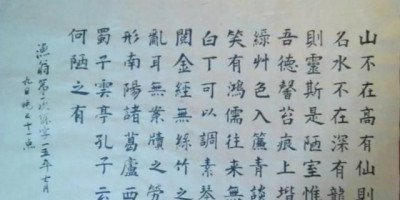 山不在高有仙則
名水不在深有龍
則靈斯是陋室惟
吾德馨苔痕上堦
綠艸色入簾青談
笑有鴻儒往來無
白丁可以調素琴
閱金經無絲竹之
亂耳無案牘之勞
形南陽諸葛廬西
蜀子雲亭孔子云
何陋之有
漁翁 字一五年七月
九日晚